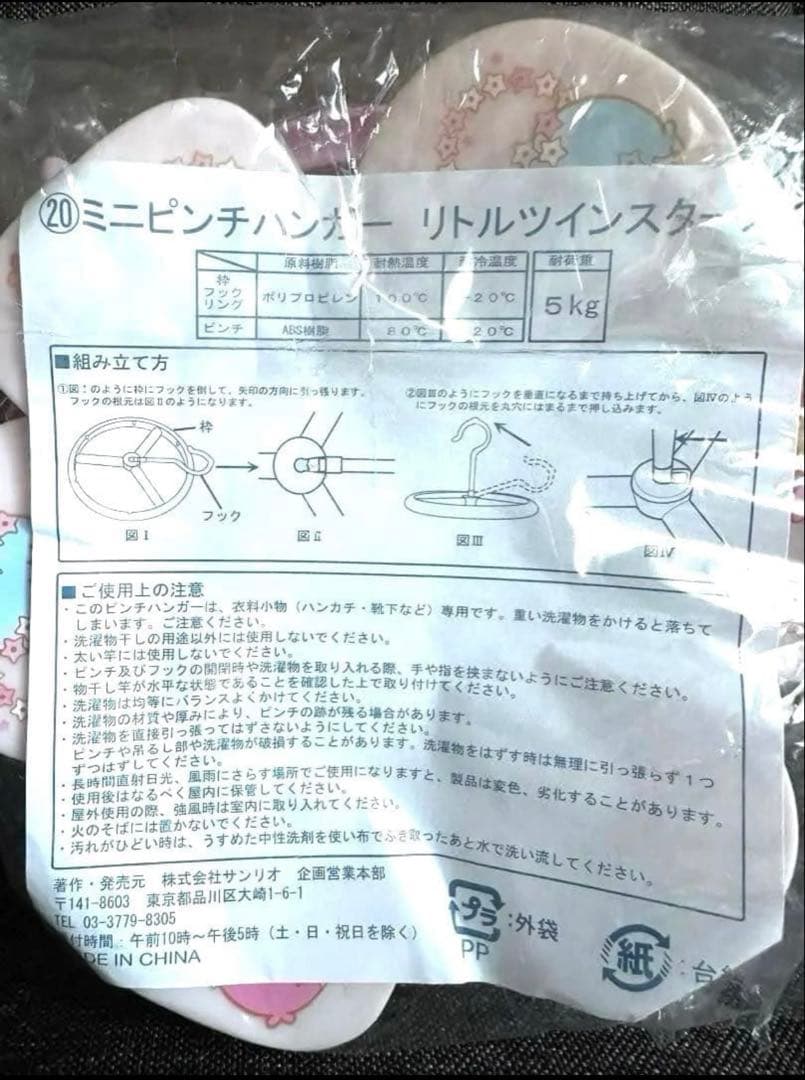 ⑳ミニピンチハンガー リトルツインスター
原料樹脂 耐熱温度 耐冷温度 耐荷重
枠
フック
リング
ポリプロピレン 100℃ -20℃
5kg
ピンチ ABS樹脂 80℃ 20℃
■組み立て方
①図Iのように枠にフックを倒して、矢印の方向に引っ張ります。
フックの根元は図Ⅱのようになります。
②図Ⅲのようにフックを垂直になるまで持ち上げてから、図Ⅳのよう
にフックの根元を丸穴にはまるまで押し込みます。
枠
フック
図Ⅰ
図Ⅱ
図Ⅲ
図Ⅳ
■ご使用上の注意
・このピンチハンガーは、衣料小物（ハンカチ・靴下など）専用です。重い洗濯物をかけると落ちて
しまいます。ご注意ください。
・洗濯物干しの用途以外には使用しないでください。
・太い竿には使用しないでください。
・ピンチ及びフックの開閉時や洗濯物を取り入れる際、手や指を挟まないようにご注意ください。
・物干し竿が水平な状態であることを確認した上で取り付けてください。
・洗濯物は均等にバランスよくかけてください。
・洗濯物の材質や厚みにより、ピンチの跡が残る場合があります。
・洗濯物を直接引っ張ってはずさないようにしてください。
ピンチや吊るし部や洗濯物が破損することがあります。洗濯物をはずす時は無理に引っ張らず1つ
ずつはずしてください。
・長時間直射日光、風雨にさらす場所でご使用になりますと、製品は変色、劣化することがあります。
・使用後はなるべく屋内に保管してください。
・屋外使用の際、強風時は室内に取り入れてください。
・火のそばには置かないでください。
・汚れがひどい時は、うすめた中性洗剤を使い布でふき取ったあと水で洗い流してください。
著作・発売元 株式会社サンリオ 企画営業本部
〒141-8603 東京都品川区大崎1-6-1
TEL 03-3779-8305
付時間：午前10時～午後5時（土・日・祝日を除く）
DE IN CHINA
プラ
：外袋
PP
紙
：台